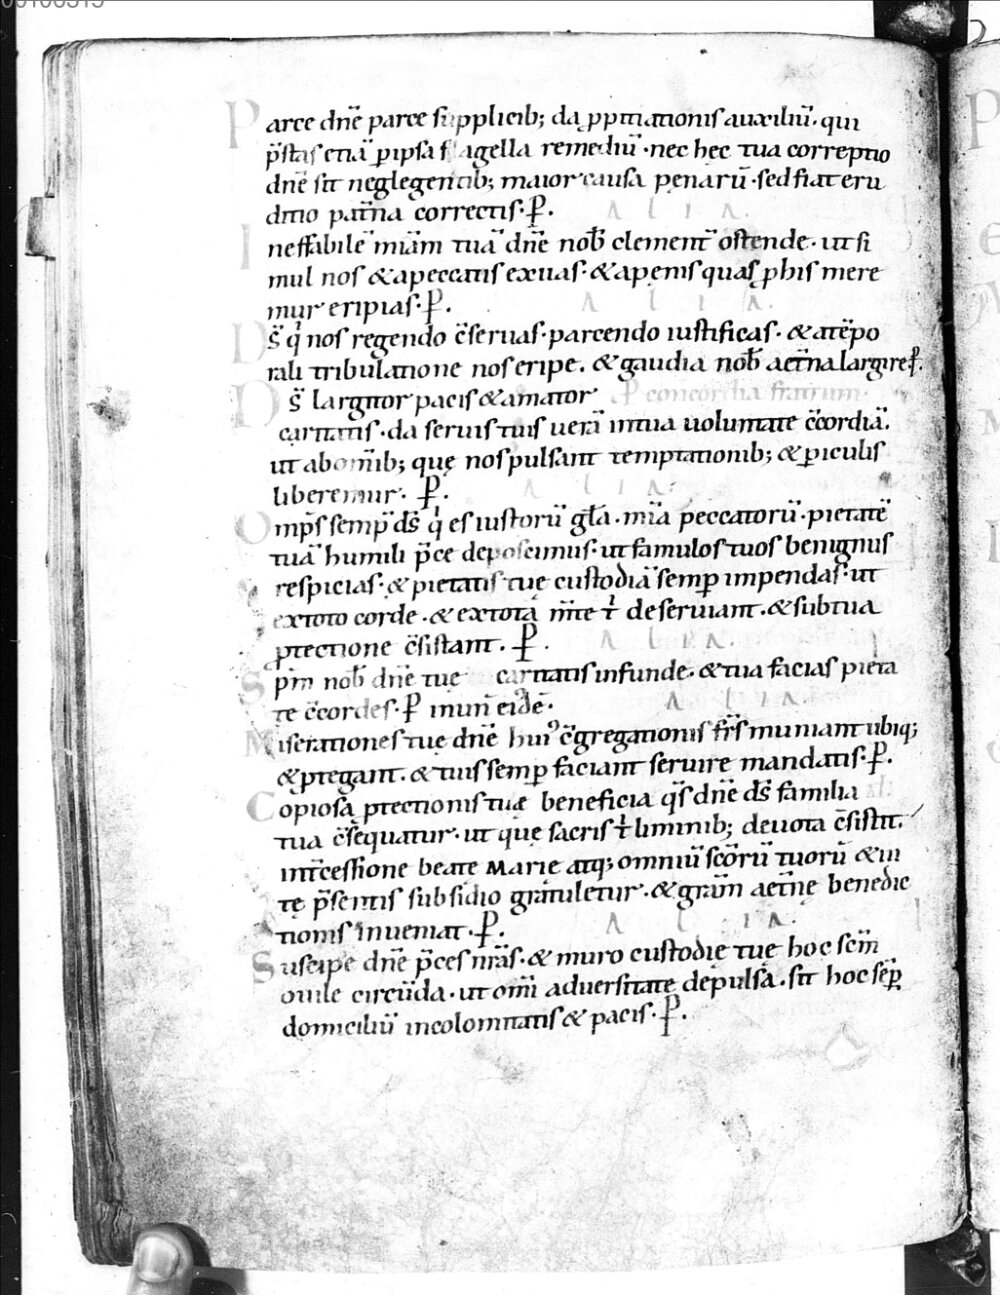 Parce dn̄e parce supplicib; da ꝓpitiationis auxiliū. qui
p̄stas etiā ꝑ ipsa flagella remediū. nec hęc tua correptio
dn̄e sit neglegentib; maior causa penarū. sed fiat eru
ditio pat̄na correctis. P.
A L I A.
Ineffabilē mīam tuā dn̄e nob̄ clement̄ ostende. ut si
mul nos & a peccatis exuas. & a penis quas ꝓ his mere
mur eripias. P.
A L I A.
Ds̄ q' nos regendo c̄seruas. parcendo iustificas. & a tēpo
rali tribulatione nos eripe. & gaudia nob̄ aet̄na largire. P.
Ds̄ largitor pacis & amator P concordia fratrum.
caritatis. da seruis tuis uerā in tua uoluntate c̄cordiā.
ut ab om̄ib; que nos pulsant temptationib; & ꝑiculis
liberemur. P.
A L I A.
Omp̄s semp̄ ds̄ q' es iustorū gl̄a. mīa peccatorū. pietatē
tuā humili p̄ce deposcimus. ut famulos tuos benignus
respicias. & pietatis tuę custodiā semꝑ impendas. ut
ex toto corde. & ex tota m̄te t' deseruiant. & sub tua
ꝓtectione c̄sistant. P.
A L I A.
Sp̄m nob̄ dn̄e tue caritatis infunde. & tua facias pieta
te c̄cordes. P in un̄ eiđē.
A L I A.
Miserationes tuę dn̄e hui' c̄gregationis fr̄s muniant ubiq;
& ꝓtegant. & tuis semꝑ faciant seruire mandatis. P.
Copiosa ꝓtectionis tuę beneficia q̄s dn̄e ds̄ familia
tua c̄sequatur. ut que sacris t' liminib; deuota c̄sistit.
int̄cessione beate Marie atq; omniū sc̄orū tuorū & ui
te p̄sentis subsidio gratuletur. & gram̄ aet̄nę benedic
tionis inueniat. P.
A L I A.
Suscipe dn̄e p̄ces nr̄as. & muro custodie tue hoc sc̄m
ouile circūda. ut om̄i aduersitate depulsa. sit hoc sēꝑ
domiciliū incolomitatis & pacis. P.